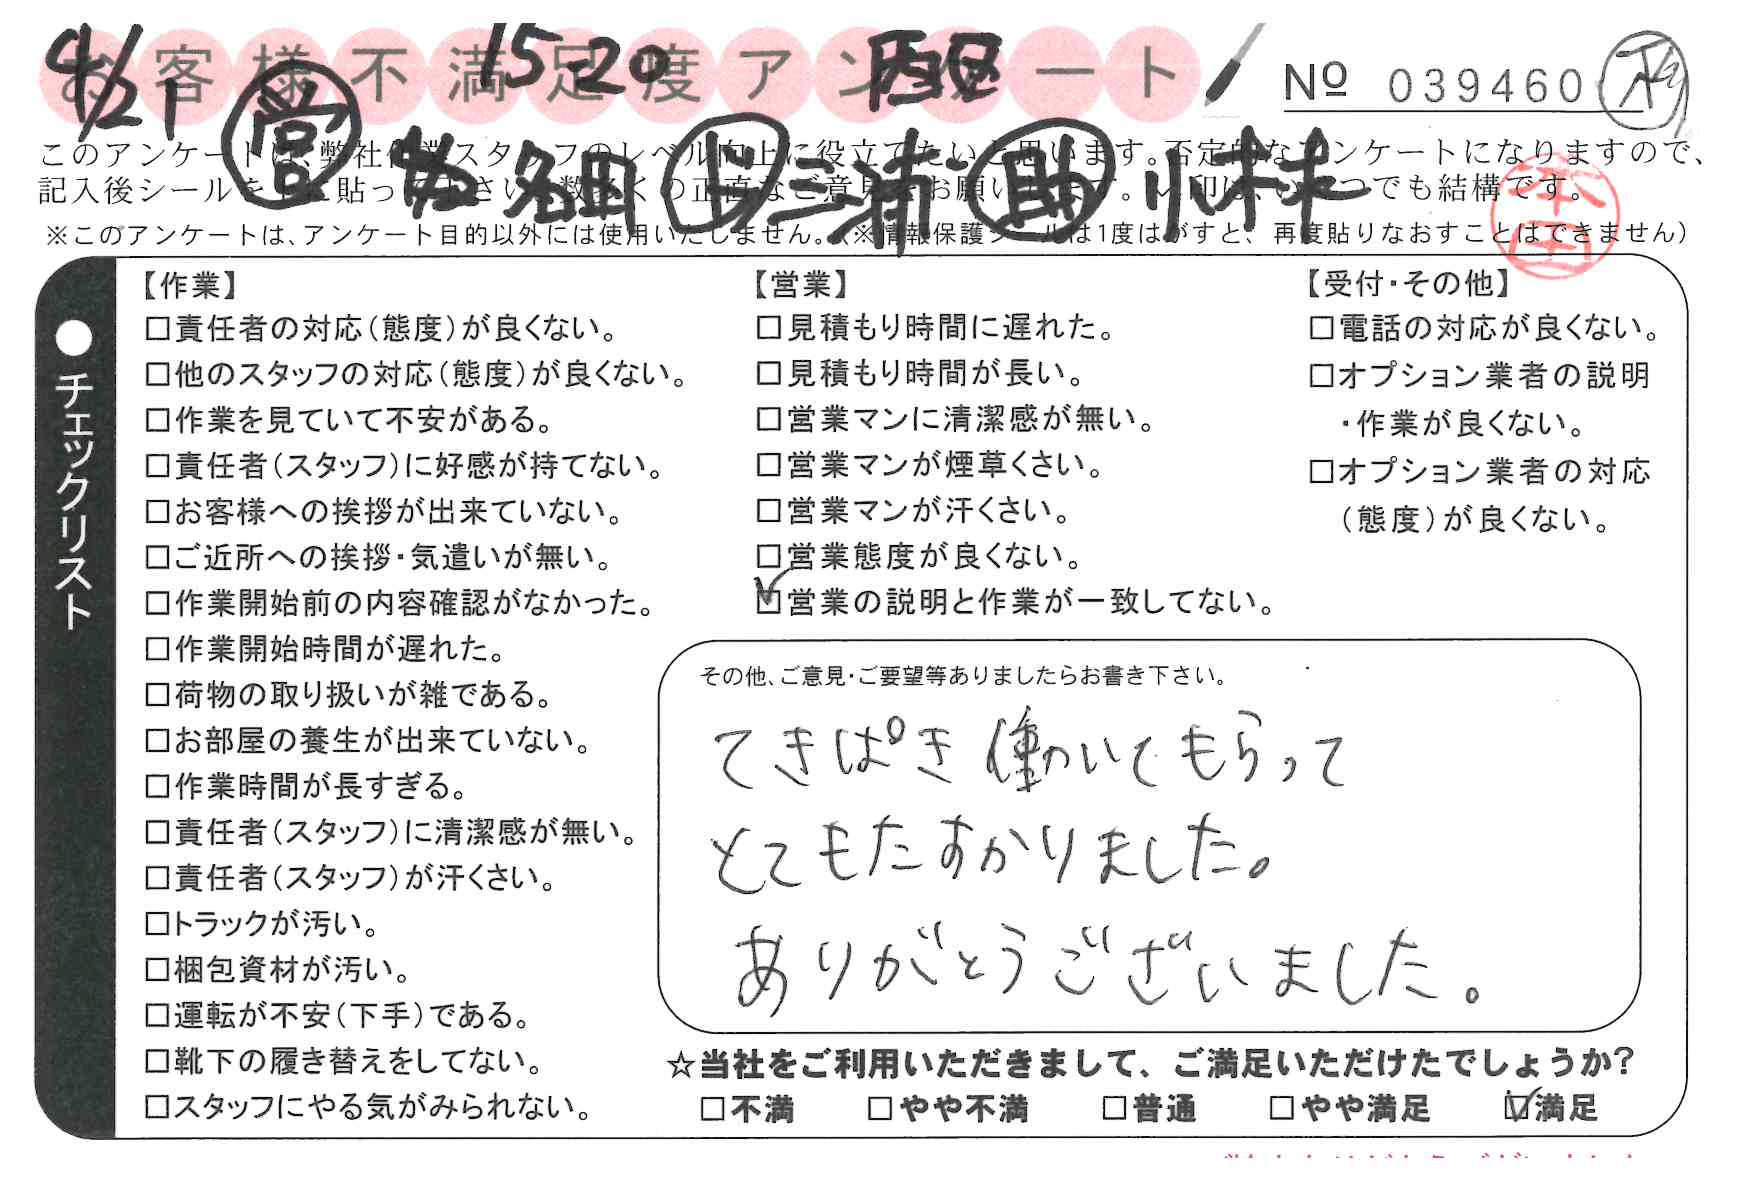 お客様不満足度アンケート
4/21 15-20 西区
Nº 039460
営 山名田 上 三浦 助 小林
このアンケートは、弊社作業スタッフのレベル向上に役立てたいと思います。否定的なアンケートになりますので、
記入後シールを下に貼って下さい。数多くの正直なご意見をお願いします。✓印は、いくつでも結構です。
※このアンケートは、アンケート目的以外には使用いたしません。(※情報保護シールは1度はがすと、再度貼りなおすことはできません)
●チェックリスト
【作業】
□責任者の対応(態度)が良くない。
□他のスタッフの対応(態度)が良くない。
□作業を見ていて不安がある。
□責任者(スタッフ)に好感が持てない。
□お客様への挨拶が出来ていない。
□ご近所への挨拶・気遣いが無い。
□作業開始前の内容確認がなかった。
□作業開始時間が遅れた。
□荷物の取り扱いが雑である。
□お部屋の養生が出来ていない。
□作業時間が長すぎる。
□責任者(スタッフ)に清潔感が無い。
□責任者(スタッフ)が汗くさい。
□トラックが汚い。
□梱包資材が汚い。
□運転が不安(下手)である。
□靴下の履き替えをしてない。
□スタッフにやる気がみられない。
【営業】
□見積もり時間に遅れた。
□見積もり時間が長い。
□営業マンに清潔感が無い。
□営業マンが煙草くさい。
□営業マンが汗くさい。
□営業態度が良くない。
☑営業の説明と作業が一致してない。
【受付・その他】
□電話の対応が良くない。
□オプション業者の説明
・作業が良くない。
□オプション業者の対応
(態度)が良くない。
その他、ご意見・ご要望等ありましたらお書き下さい。
てきぱき働いてもらって
とてもたすかりました。
ありがとうございました。
☆当社をご利用いただきまして、ご満足いただけたでしょうか?
□不満 □やや不満 □普通 □やや満足 ☑満足